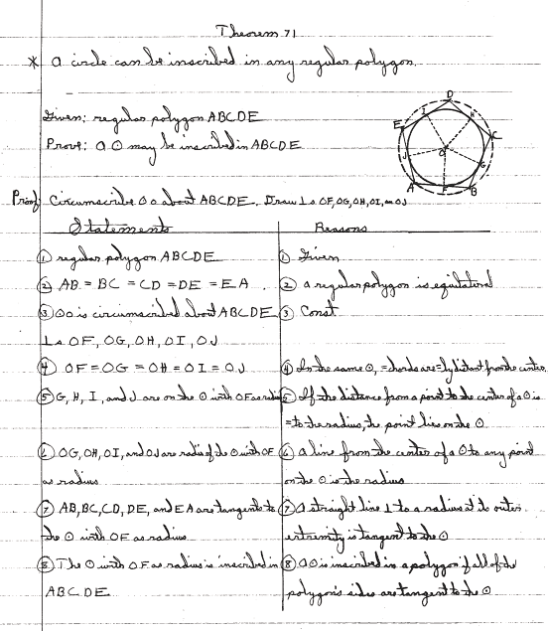 Theorem 71
* A circle can be inscribed in any regular polygon.
Given: regular polygon ABCDE
Prove: a ⊙ may be inscribed in ABCDE
D
I
H
E
C
O
J
G
A
F
B
Proof: Circumscribe ⊙ O about ABCDE. Draw ⊥s OF, OG, OH, OI, OJ
Statements
Reasons
① regular polygon ABCDE
① Given
② AB = BC = CD = DE = EA
② a regular polygon is equilateral
③ ⊙O is circumscribed about ABCDE
③ Const
⊥s OF, OG, OH, OI, OJ
④ OF = OG = OH = OI = OJ
④ In the same ⊙, = chords are =ly distant from the center
⑤ G, H, I, and J are on the ⊙ with OF as radius
⑤ If the distance from a point to the center of a ⊙ is
= to the radius, the point lies on the ⊙
⑥ OG, OH, OI, and OJ are radii of the ⊙ with OF
⑥ a line from the center of a ⊙ to any point
as radius
on the ⊙ is the radius
⑦ AB, BC, CD, DE, and EA are tangents to
⑦ a straight line ⊥ to a radius at its outer
the ⊙ with OF as radius
extremity is tangent to the ⊙
⑧ The ⊙ with OF as radius is inscribed in
⑧ a ⊙ is inscribed in a polygon if all of the
ABCDE
polygon's sides are tangent to the ⊙